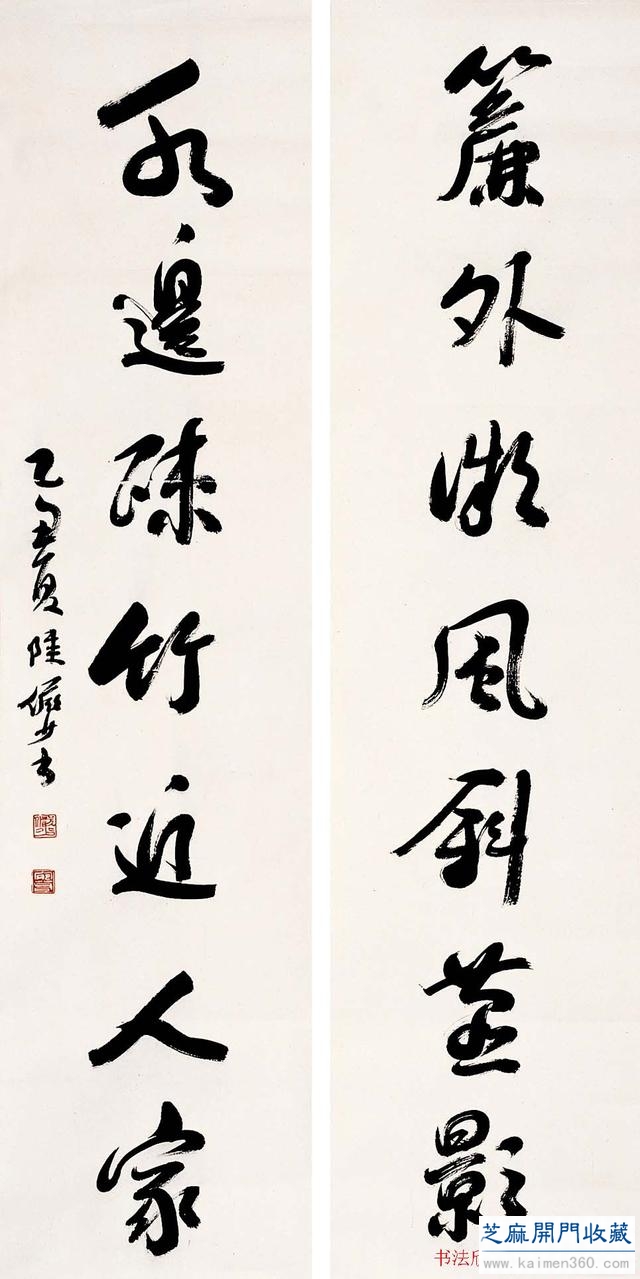 簾外微風斜燕影
水邊疎竹近人家
乙丑夏陸儼少書
书法欣
芝麻開門收藏
www.kaimen360.com